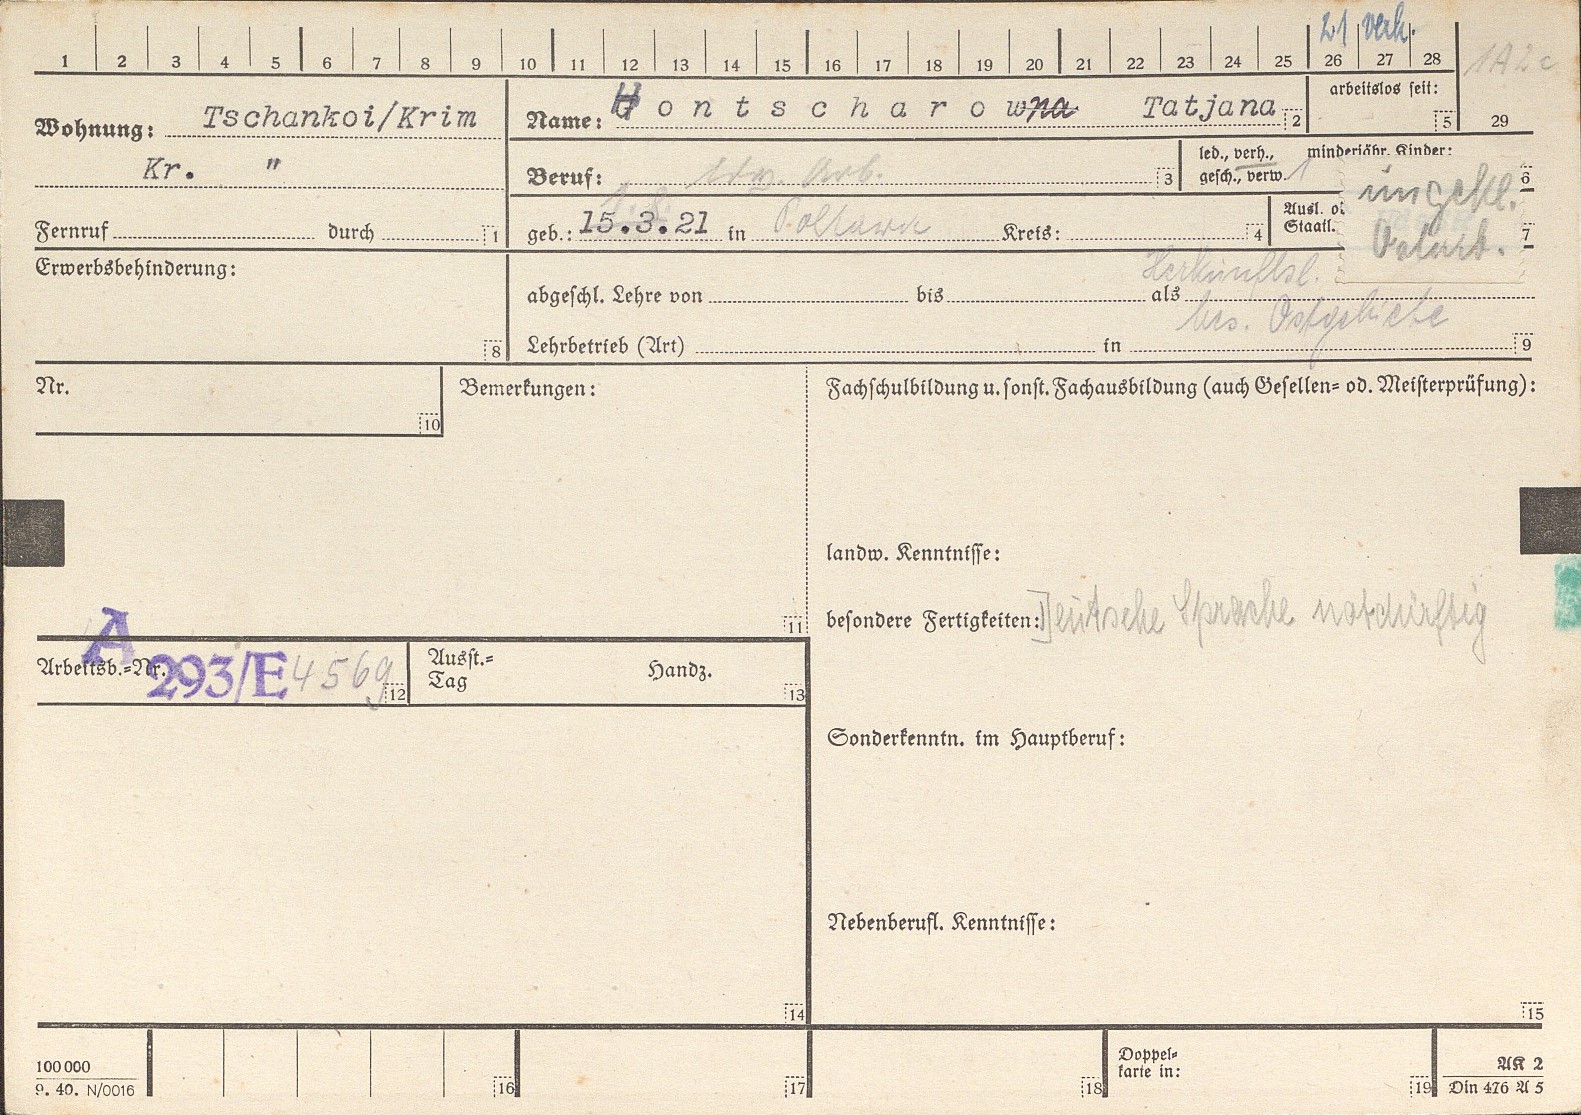 21 verh.
1 2 3 4 5 6 7 8 9 10 11 12 13 14 15 16 17 18 19 20 21 22 23 24 25 26 27 28 1A2c
29
Wohnung: Tschankoi/Krim
Kr. "
Fernruf durch 1
Name: Hontscharowna Tatjana 2
arbeitslos seit: 5
Beruf: ldw. Arb. 3
led., verh., gesch., verw. 1
minderjähr. Kinder: 6
geb.: 15.3.21 in Poltawa Kreis: 4
Ausl. od
Staatl. 7
ungekl.
Ostarb.
Erwerbsbehinderung:
8
Herkunftsl.
abgeschl. Lehre von bis als
bes. Ostgebiete
Lehrbetrieb (Art) in 9
Nr.
10
Bemerkungen:
11
Fachschulbildung u. sonst. Fachausbildung (auch Gesellen= od. Meisterprüfung):
landw. Kenntnisse:
besondere Fertigkeiten: Deutsche Sprache notdürftig
A
Arbeitsb.=Nr. 293/E 4569 12
Ausst.= Tag Handz. 13
Sonderkenntn. im Hauptberuf:
Nebenberufl. Kenntnisse:
14
15
100 000
9. 40. N/0016
16
17
18
Doppel=
karte in:
19
AK 2
Din 476 A 5